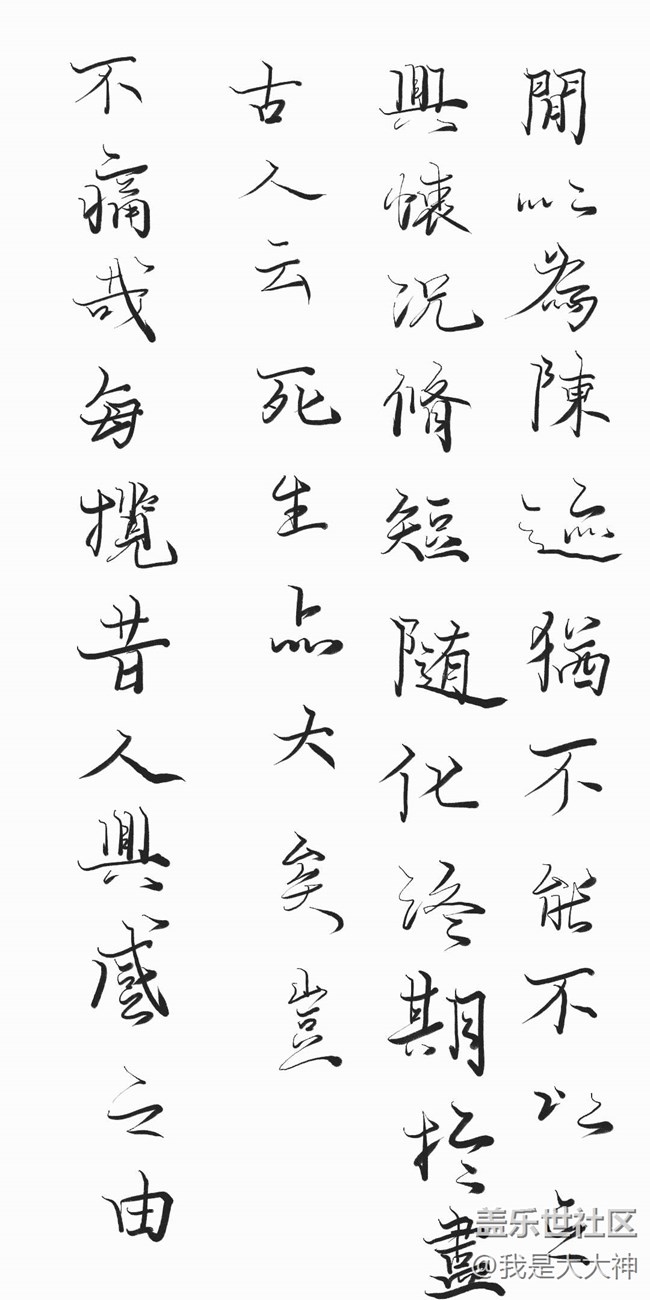 閒以為陳迹猶不能不以之
興懷況脩短隨化終期於盡
古人云死生亦大矣豈
不痛哉每攬昔人興感之由
盖乐世社区
@我是大大神